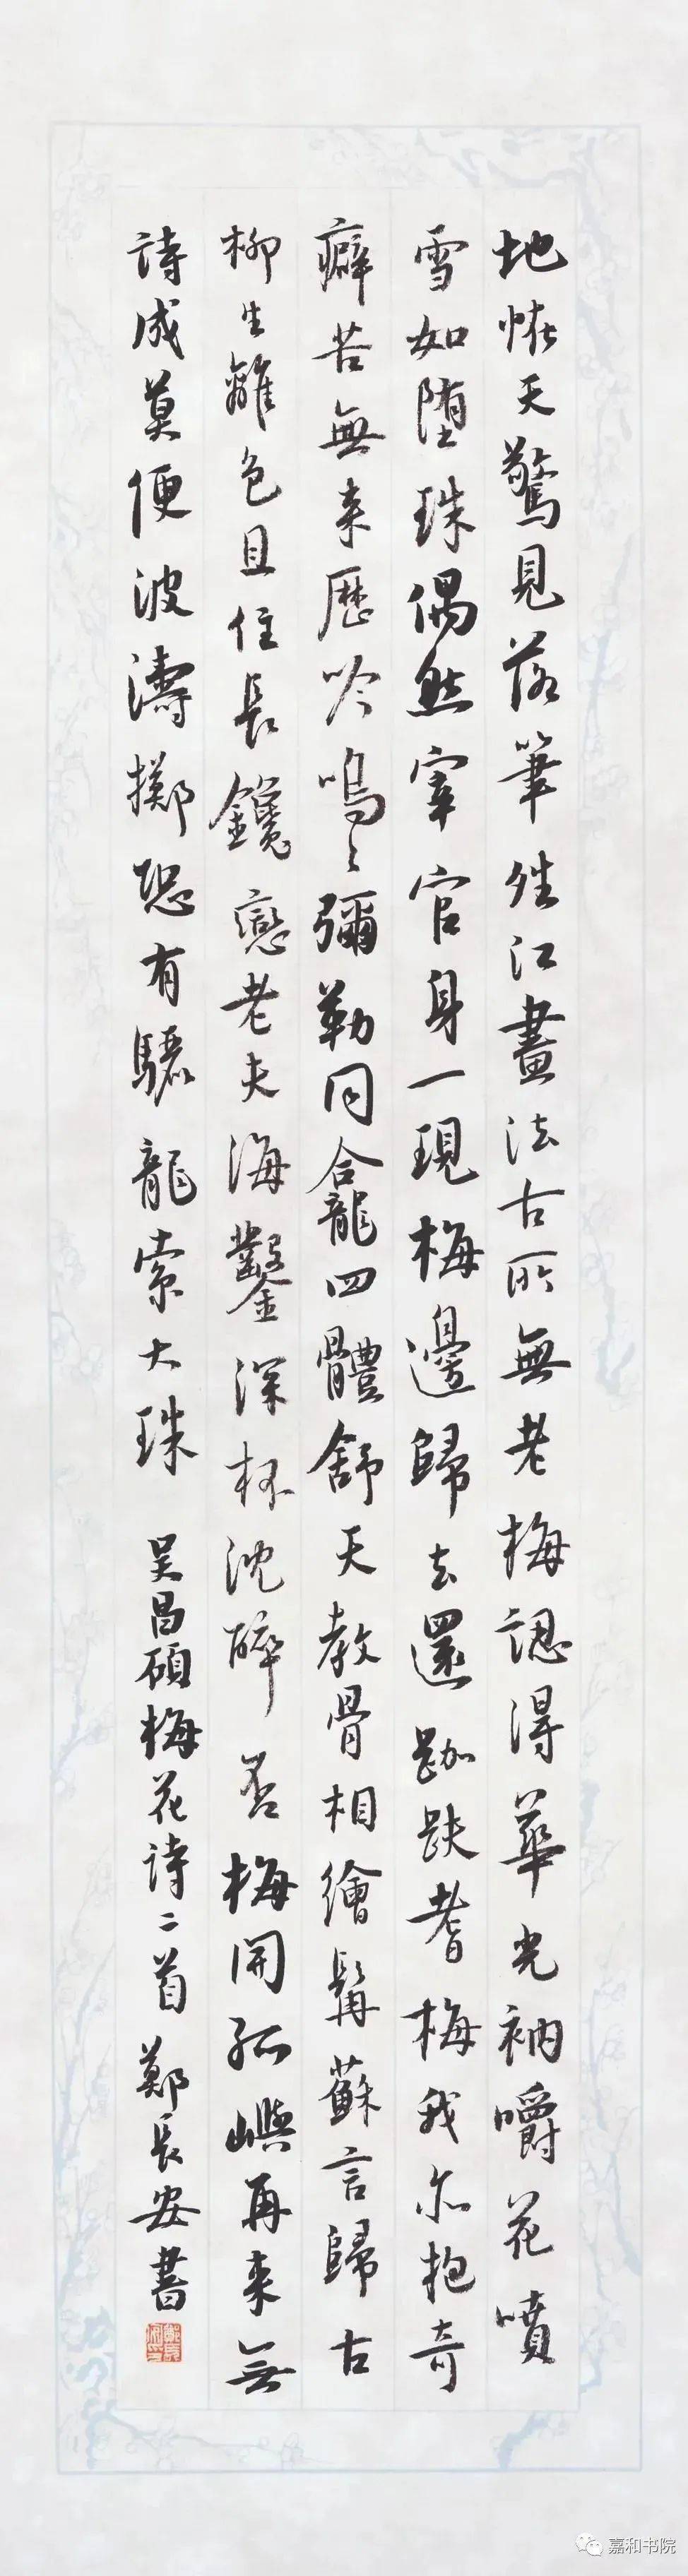 地怪天驚見落筆繼江畫法古所無老梅認得華光衲嚼花噴
雪如墮珠偶然宰官身一現梅邊歸去還跏趺耆梅我亦抱奇
癖苦無来歷吟嗚〻彌勒同龕四體舒天教骨相繪髯蘇言歸古
柳生離色且住長鑱戀老夫海鑿深杯沈醉否梅開孤嶼再来無
詩成莫便波濤擲恐有驪龍索大珠 吴昌碩梅花詩二首 鄭長安書
嘉和书院